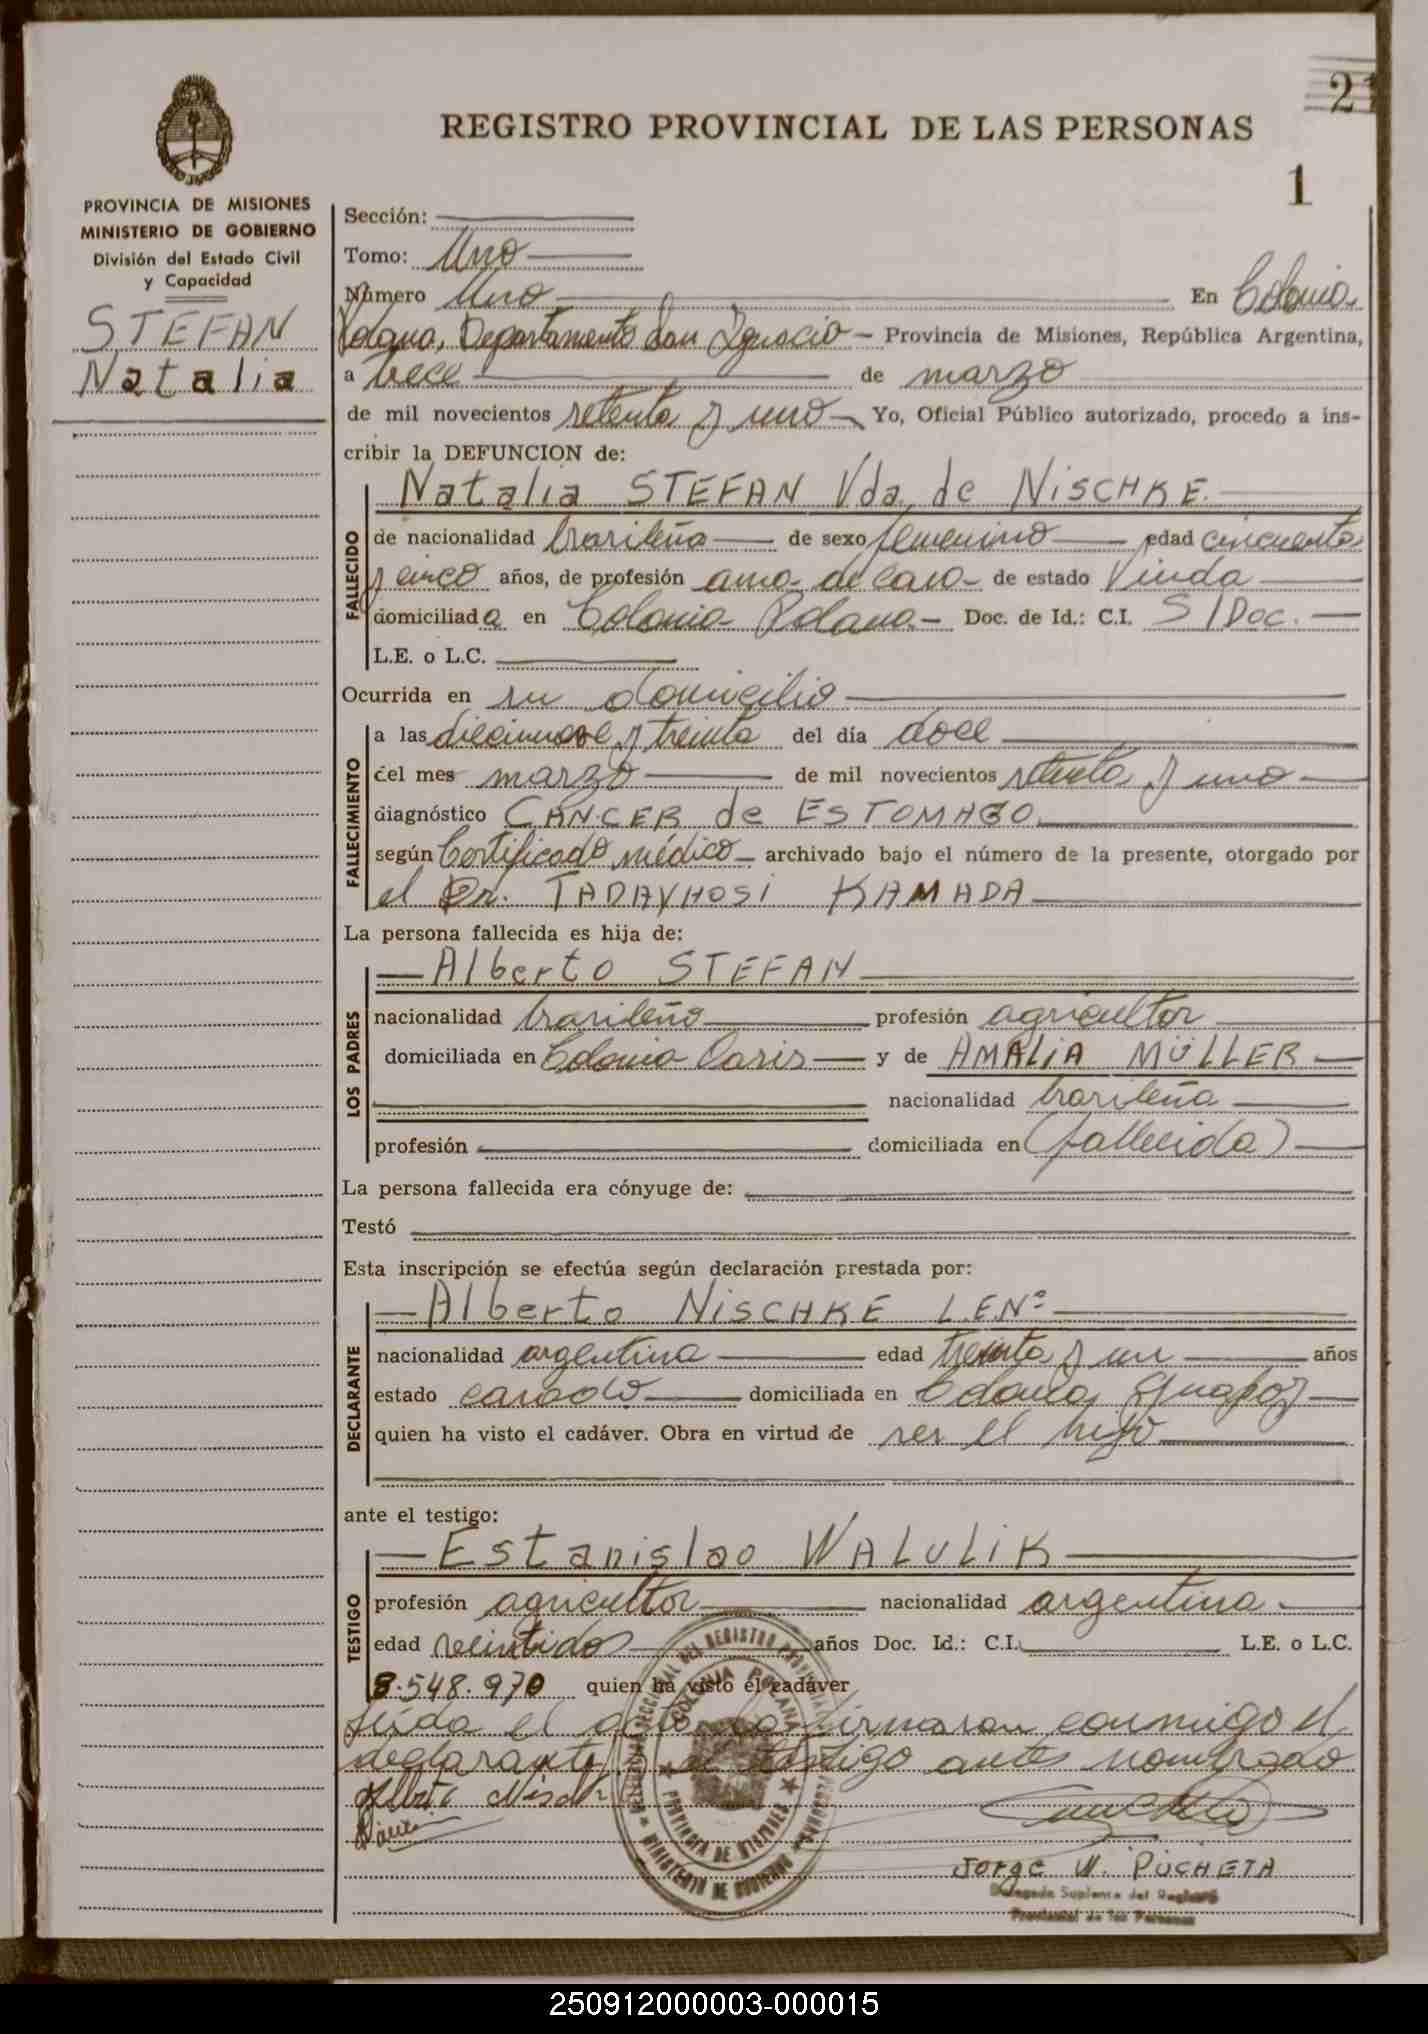 21
REGISTRO PROVINCIAL DE LAS PERSONAS
1
PROVINCIA DE MISIONES
MINISTERIO DE GOBIERNO
División del Estado Civil
y Capacidad
STEFAN
Natalia
Sección:
Tomo: Uno
Número Uno En Colonia
Polana, Departamento San Ignacio - Provincia de Misiones, República Argentina,
a trece de marzo
de mil novecientos setenta y uno Yo, Oficial Público autorizado, procedo a ins-
cribir la DEFUNCION de:
Natalia STEFAN Vda. de NISCHKE.
FALLECIDO
de nacionalidad brasileña de sexo femenino edad cincuenta
y cinco años, de profesión ama de casa de estado Viuda
domiciliada en Colonia Polana.- Doc. de Id.: C.I. S/Doc.
L.E. o L.C.
Ocurrida en su domicilio
FALLECIMIENTO
a las diecinueve y treinta del día doce
del mes marzo de mil novecientos setenta y uno
diagnóstico CANCER de ESTOMAGO.
según Certificado médico archivado bajo el número de la presente, otorgado por
el Dr. TADAYHOSI KAMADA
La persona fallecida es hija de:
LOS PADRES
Alberto STEFAN
nacionalidad brasileño profesión agricultor
domiciliada en Colonia Oasis y de AMALIA MÜLLER
nacionalidad brasileña
profesión domiciliada en (fallecida)
La persona fallecida era cónyuge de:
Testó
Esta inscripción se efectúa según declaración prestada por:
DECLARANTE
Alberto NISCHKE L.E.Nº
nacionalidad argentina edad treinta y un años
estado casado domiciliada en Colonia Gisela
quien ha visto el cadáver. Obra en virtud de ser el hijo
ante el testigo:
TESTIGO
Estanislao WALULIK
profesión agricultor nacionalidad argentina.
edad veintidos años Doc. Id.: C.I. L.E. o L.C.
8.548.970 quien ha visto el cadáver
Leída el acta la firmaron conmigo el
declarante y el testigo antes nombrado
Jorge W. PUCHETA
Delegado Suplente del Registro
Provincial de las Personas
COLONIA POLANA
PROVINCIA DE MISIONES
MINISTERIO DE GOBIERNO
250912000003-000015